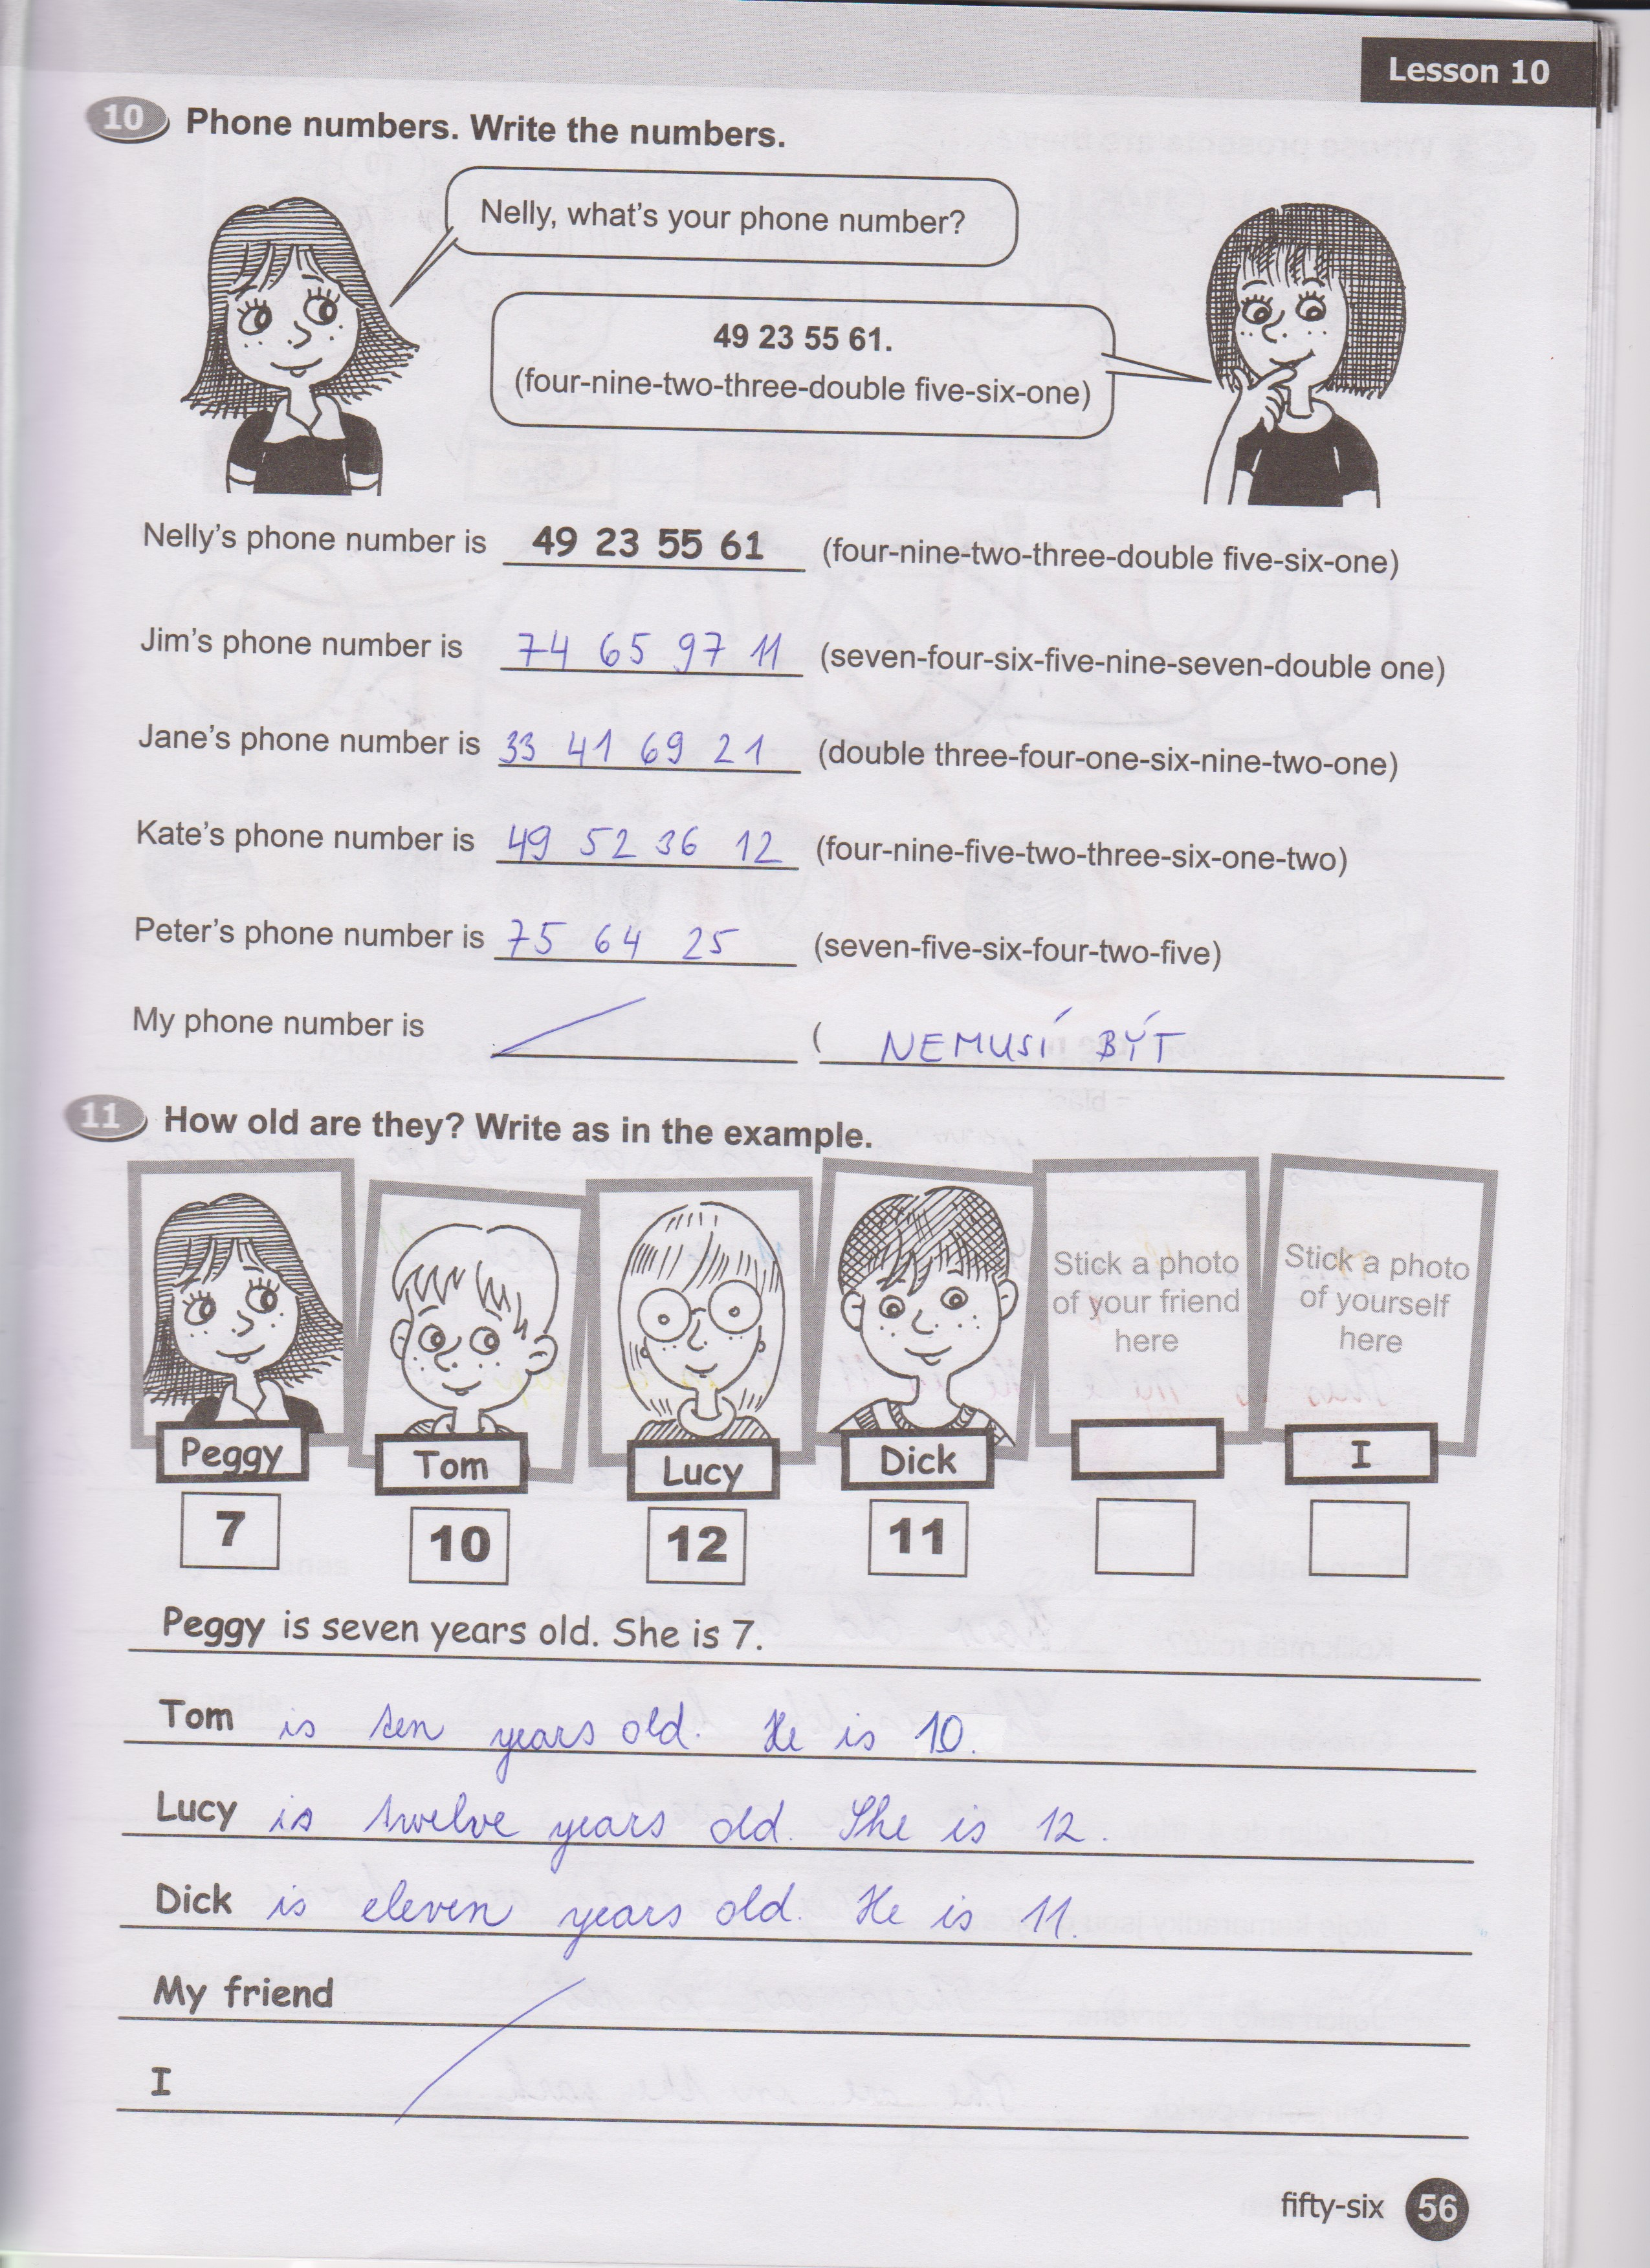 Lesson 10
10 Phone numbers. Write the numbers.
Nelly, what's your phone number?
49 23 55 61.
(four-nine-two-three-double five-six-one)
Nelly's phone number is 49 23 55 61 (four-nine-two-three-double five-six-one)
Jim's phone number is 74 65 97 11 (seven-four-six-five-nine-seven-double one)
Jane's phone number is 33 41 69 21 (double three-four-one-six-nine-two-one)
Kate's phone number is 49 52 36 12 (four-nine-five-two-three-six-one-two)
Peter's phone number is 75 64 25 (seven-five-six-four-two-five)
My phone number is ( NEMUSÍ BÝT
11 How old are they? Write as in the example.
Stick a photo
of your friend
here
Stick a photo
of yourself
here
Peggy Tom Lucy Dick I
7 10 12 11
Peggy is seven years old. She is 7.
Tom is ten years old. He is 10.
Lucy is twelve years old. She is 12.
Dick is eleven years old. He is 11.
My friend
I
fifty-six 56